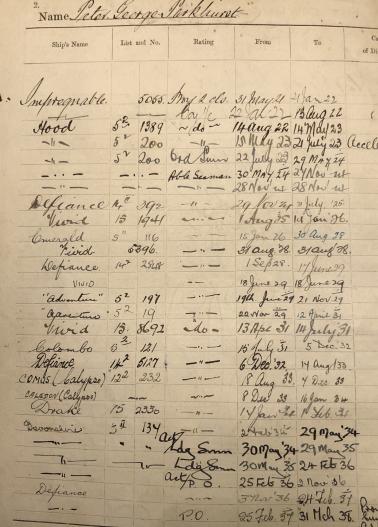 2.
Name Peter George Parkhurst
Ship's Name List and No. Rating From To Ca
of Di
Impregnable 5055 Boy 2 cls 31 May 21 Jan 22
Boy 1/c 22 13 Aug 22
Hood 5² 1389 ~ do ~ 14 Aug 22 14 May 23
—"— 5² 200 —"— 15 May 23 21 July 23 Accele
—"— 5² 200 Ord Smn 22 July 23 29 May 24
—"— —"— Able Seaman 30 May 24 27 Nov 24
—"— —"— —"— 28 Nov 24 28 Nov 24
Defiance 14" 292 —"— 29 Nov 24 July '25
Vivid 15 1941 —"— 1 Aug 25 14 Jan 26
Emerald 5" 116 —"— 15 Jan 26 30 Aug 28
Vivid 5396 —"— 31 Aug 28 31 Aug 28
Defiance 14² —"— 1 Sep 28 17 June 29
VIVID —"— 18 June 29 18 June 29
"Adventure" 5² 197 —"— 19th June 29 21 Nov 29
5² 19 —"— 22 Nov 29 12 April 31
Vivid 13 8692 ~do~ 13 Apl 31 14 July 31
Colombo 5² 121 —"— 15 July 31 5 Dec 32
Defiance 14² 5127 —"— 6 Dec 32 14 Aug 33
COMUS (Calypso) 12² 232 —"— 18 Aug 33 7 Dec 33
(Calypso) —"— 8 Dec 33 16 Jan 34
Drake 15 2330 —"— 17 Jan 34 1 Feb 34
Devonshire 5" 134 —"— 2 Feb 34 29 May '34
—"— " Act Ldg Smn 30 May '34 29 May 35
—"— " Ldg Smn 30 May 35 24 Feb 36
—"— Act P.O. 25 Feb 36 2 Nov 36
Defiance —"— 3 Nov 36 24 Feb. 37
—"— P.O. 25 Feb. 37 31 Mch 38